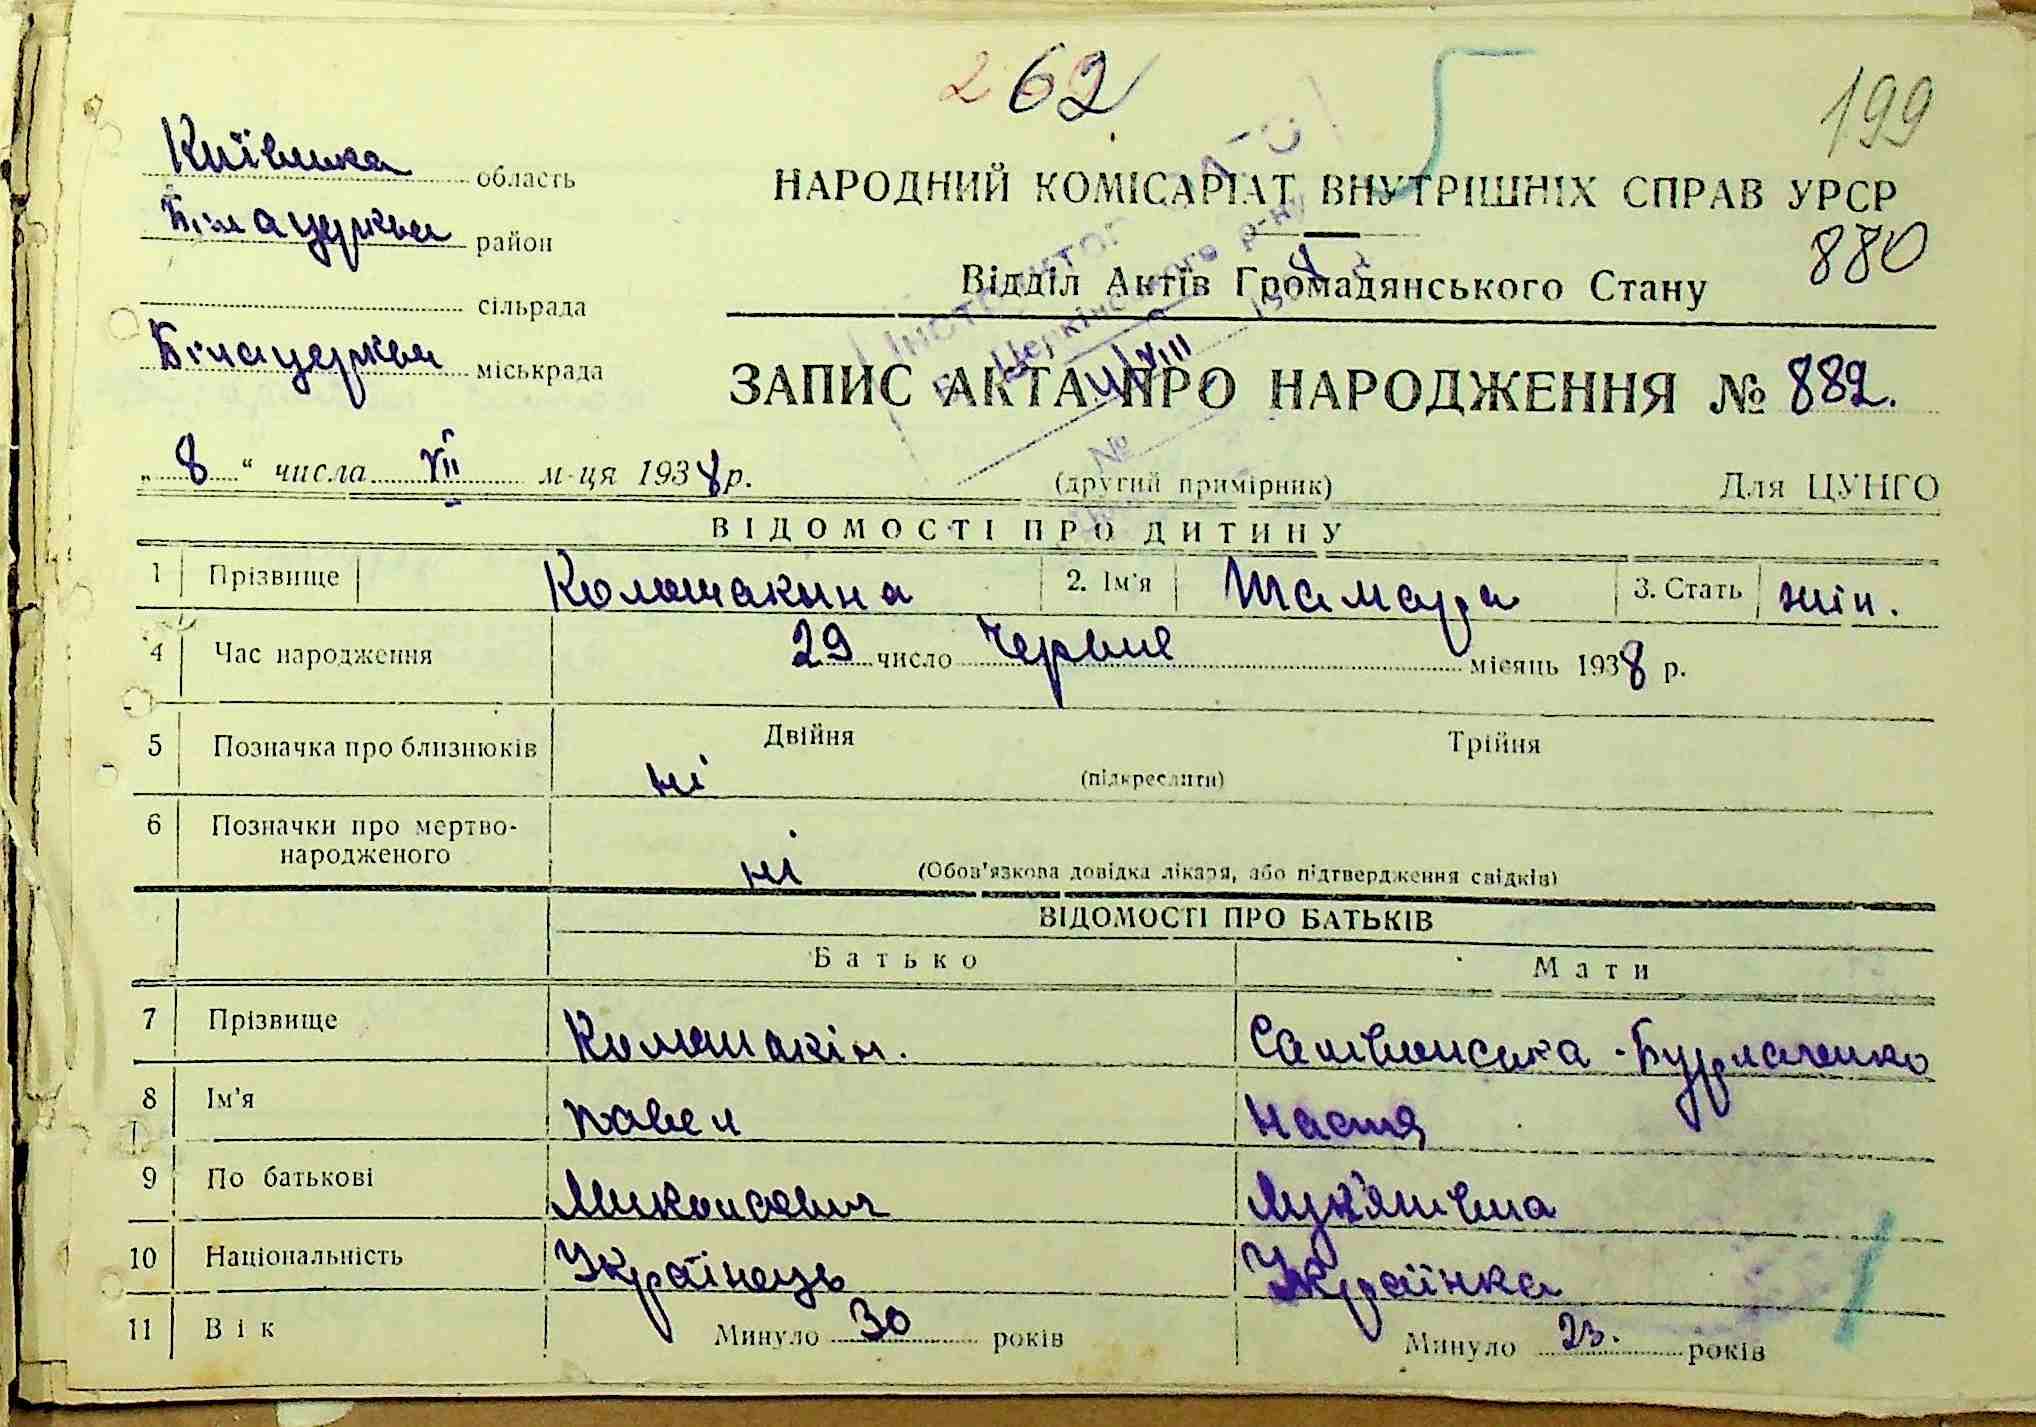 262
199
Київська область
Білацеркви район
сільрада
Білацеркви міськрада
НАРОДНИЙ КОМІСАРІАТ ВНУТРІШНІХ СПРАВ УРСР
880
Відділ Актів Громадянського Стану
ЗАПИС АКТА ПРО НАРОДЖЕННЯ № 882.
„8“ числа VII м-ця 1938 р.
(другий примірник)
Для ЦУНГО
ВІДОМОСТІ ПРО ДИТИНУ
1 Прізвище Коломакина 2. Ім'я Тамара 3. Стать жін.
4 Час народження 29 число Червня місяць 1938 р.
5 Позначка про близнюків ні Двійня Трійня
(підкреслити)
6 Позначки про мертво-
народженого ні (Обов'язкова довідка лікаря, або підтвердження свідків)
ВІДОМОСТІ ПРО БАТЬКІВ
Батько Мати
7 Прізвище Коломакін. -Бурлаченко
8 Ім'я Павел Настя
9 По батькові Миколаевич Лук'янівна
10 Національність Українець Українка
11 Вік Минуло 30 років Минуло 23. років